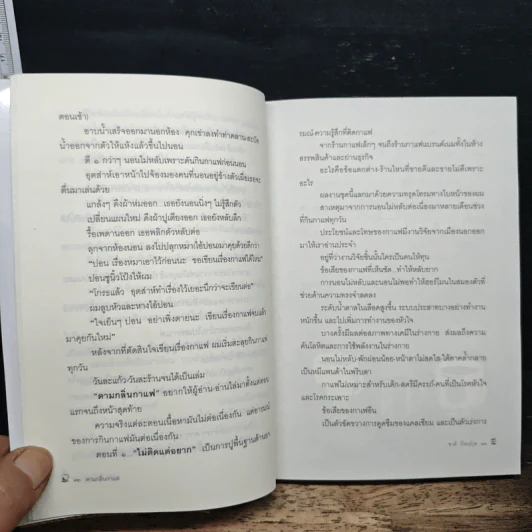 ตอนเช้า)
อาบน้ำเสร็จออกมานอกห้อง คุกเข่าลงทำท่าคลาน-สะบัด
น้ำออกจากตัวให้แห้งแล้วขึ้นไปนอน
ตี ๑ กว่าๆ นอนไม่หลับเพราะดันกินกาแฟก่อนนอน
อุตส่าห์เอาหน้าไปจ้องมองคนที่นอนอยู่ข้างตัวเผื่อเธอจะ
ตื่นมาเล่นด้วย
แกล้งๆ ดึงผ้าห่มออก เธอยังนอนนิ่งๆ ไม่รู้สึกตัว
เปลี่ยนแผนใหม่ ดึงผ้าปูเตียงออก เธอยังหลับลึก
รื้อเพดานออก เธอพลิกตัวหลับต่อ
ลุกจากห้องนอน ลงไปปลุกหมาไอ้ปอนมาคุยด้วยดีกว่า
"ปอน เรื่องหมาเอาไว้ก่อนนะ ขอเขียนเรื่องกาแฟได้ไหม"
ปอนชูนิ้วโป้งให้ผม
"โกรธแล้ว อุตส่าห์ทำเรื่องไว้เยอะนึกว่าจะเขียนต่อ"
ผมลูบหัวและหางไอ้ปอน
"ใจเย็นๆ ปอน อย่าเพิ่งตายนะ เขียนเรื่องกาแฟจบแล้ว
มาคุยกันใหม่"
หลังจากที่ตัดสินใจเขียนเรื่องกาแฟ ผมเริ่มตะลุยกินกาแฟ
ทุกวัน
วันละแก้ว-วันละร้านจนได้เป็นเล่ม
"ตามกลิ่นกาแฟ" อยากให้ผู้อ่าน-อ่านไล่มาตั้งแต่ตอน
แรกจนถึงหน้าสุดท้าย
ความจริงแต่ละตอนเนื้อหามันไม่ต่อเนื่องกัน แต่อารมณ์
ของการกินกาแฟมันต่อเนื่องกัน
ตอนที่ ๑ "ไม่ติดแต่อยาก" เป็นการปูพื้นฐานด้าน
ตามกลิ่นกาแฟ
รมณ์-ความรู้สึกที่ติดกาแฟ
จากร้านกาแฟเล็กๆ จนถึงร้านกาแฟแบรนด์เนมทั้งในห้าง
สรรพสินค้าและย่านธุรกิจ
อะไรคือข้อแตกต่าง-ร้านไหนที่ขายดีและขายไม่ดีเพราะ
อะไร
ผลงานชุดนี้แลกมาด้วยความทรุดโทรมทางใบหน้าของผม
สาเหตุมาจากการนอนไม่หลับต่อเนื่องมาหลายเดือนช่วง
ที่กินกาแฟทุกวัน
ประโยชน์และโทษของกาแฟมีงานวิจัยจากเมืองนอกออก
มาให้เราอ่านประจำ
อยู่ที่ว่างานวิจัยชิ้นนั้นใครเป็นคนให้ทุน
ข้อเสียของกาแฟที่เห็นชัด..ทำให้หลับยาก
การนอนไม่หลับและนอนไม่พอทำให้ฮอร์โมนในสมองตัวที่
ช่วยด้านความทรงจำลดลง
ระดับน้ำตาลในเลือดสูงขึ้น ระบบประสาทบางอย่างทำงาน
หนักขึ้น และไปเพิ่มการทำงานของหัวใจ
บางครั้งมีผลต่อสภาพทางเคมีในร่างกาย ส่งผลถึงความ
ดันโลหิตและการใช้พลังงานในร่างกาย
นอนไม่หลับ-พักผ่อนน้อย-หน้าตาไม่สดใส-ใต้ตาดำคล้ำกลาย
เป็นหมีแพนด้าในพริบตา
กาแฟไม่เหมาะสำหรับเด็ก-สตรีมีครรภ์-คนที่เป็นโรคหัวใจ
และโรคกระเพาะ
ข้อเสียของกาแฟอื่น
เป็นตัวขัดขวางการดูดซึมของแคลเซียม และเป็นตัวเร่งการ